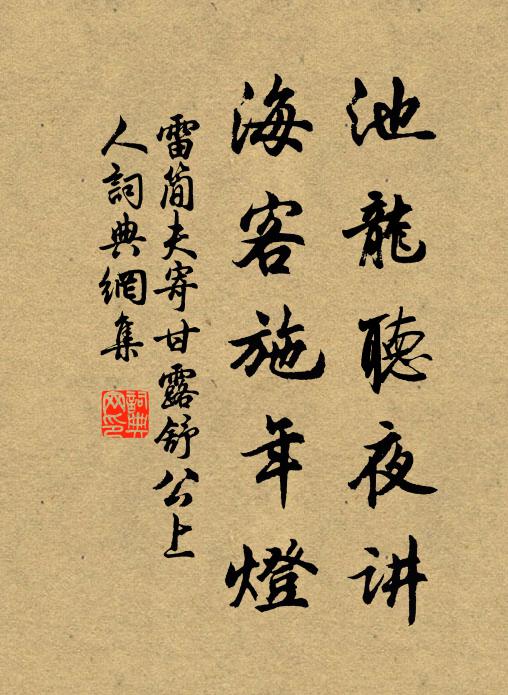 池龍聽夜讲
海客施年燈
雷簡夫寄甘露舒公上
人詞典網集
詞典
网印